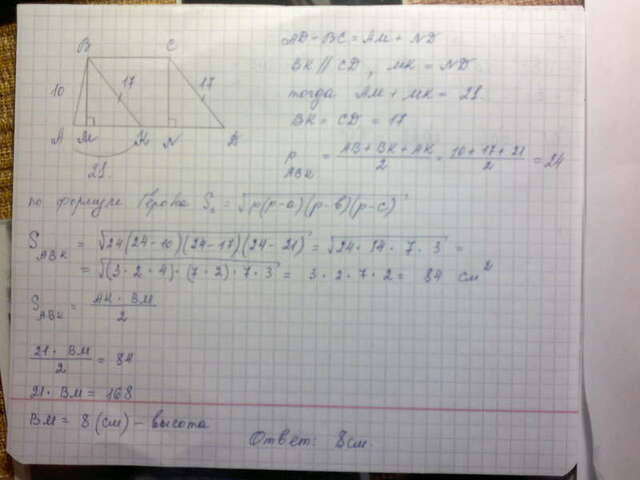 B C
10 17 17
A M K N D
21.
AD - BC = AM + ND
BK // CD, MK = ND
тогда AM + MK = 21.
BK = CD = 17
p ABK = AB + BK + AK / 2 = 10 + 17 + 21 / 2 = 24
по формуле Герона S△ = √p(p-a)(p-b)(p-c)
S ABK = √24(24-10)(24-17)(24-21) = √24·14·7·3 =
= √(3·2·4)·(7·2)·7·3 = 3·2·7·2 = 84 см²
S ABK = AK · BM / 2
21 · BM / 2 = 84
21 · BM = 168
BM = 8 (см) - высота
Ответ: 8 см.